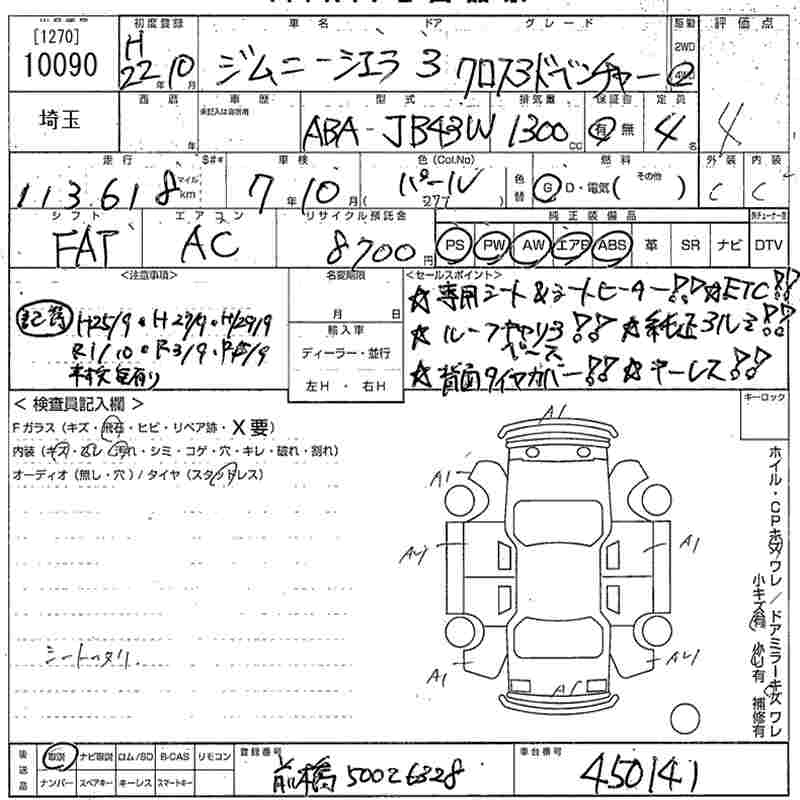 [1270] 初度登録 車名 ドア グレード 駆動 評価点
10090 H22年10月 ジムニーシエラ 3 クロスアドベンチャー 2WD 4WD 4
埼玉 西暦 年 車歴 未記入は自家用 型式 ABA-JB43W 排気量 1300cc 保証書 有 無 定員 4名
走行 マイル S#* 車検 色(Col.No) 色替 燃料 外装 内装
113,618 km 7年10月 パール 277 G D・電気( その他 ) C C
シフト エアコン リサイクル預託金 純正装備品
FAT AC 8700円 PS PW AW エアB ABS 革 SR ナビ DTV
<注意事項> 名変期限 <セールスポイント>
記簿 H25/9・H27/9・H29/9 月 日 ☆専用シート&シートヒーター!! ☆ETC!!
R1/10・R3/9・R5/9 輸入車 ☆ルーフキャリア ベース!! ☆純正アルミ!!
ディーラー・並行 ☆背面タイヤカバー!! ☆キーレス!!
左H・右H
<検査員記入欄> キーロック
Fガラス(キズ・飛石・ヒビ・リペア跡・X要)
内装(キズ・スレ・汚れ・シミ・コゲ・穴・キレ・破れ・割れ)
オーディオ(無し・穴)/タイヤ(スタッドレス)
A1
A1
A1
A1
A1
シートヘタリ
ホイル・CPキズ/ワレ/ドアミラーキズ/ワレ
小キズ有 少凹有 補修有
後送品 取説 ナビ取説 ロム/SD B-CAS リモコン 登録番号 車台番号
ナンバー スペアキー キーレス スマートキー 前橋 500 2 6328 450141